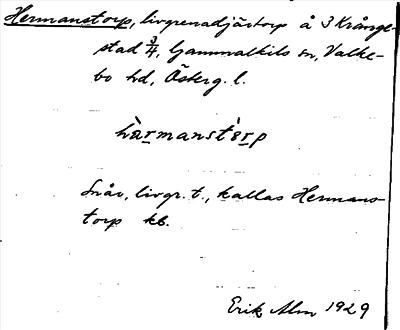 Hermanstorp, livgrenadjärtorp å 3 Krånge-
stad 3/4, Gammalkils sn, Valke-
bo hd, Österg. l.
hàrmanstòrp
Snår, livgr. t., kallas Hermans-
torp kb.
Erik Alm 1929